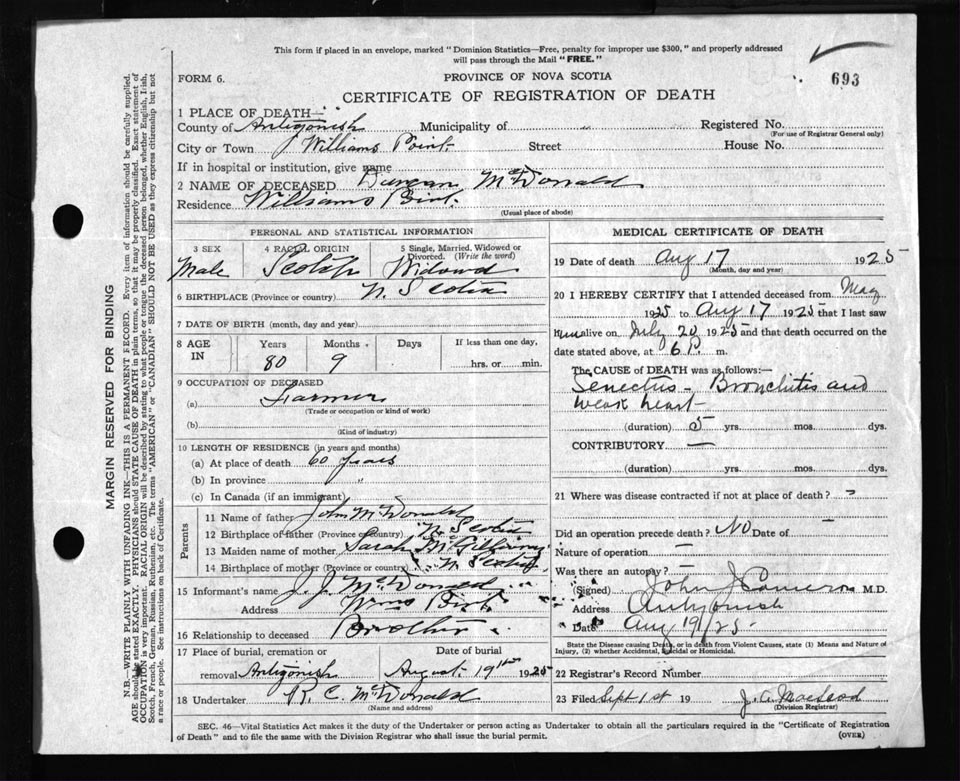 This form if placed in an envelope, marked "Dominion Statistics—Free, penalty for improper use $300," and properly addressed
will pass through the Mail "FREE."
693
FORM 6.
PROVINCE OF NOVA SCOTIA
CERTIFICATE OF REGISTRATION OF DEATH
1 PLACE OF DEATH—
County of Antigonish Municipality of " Registered No.
(For use of Registrar General only)
City or Town Williams Point Street House No.
If in hospital or institution, give name
2 NAME OF DECEASED Duncan McDonald
Residence Williams Point.
(Usual place of abode)
PERSONAL AND STATISTICAL INFORMATION
3 SEX 4 RACIAL ORIGIN 5 Single, Married, Widowed or
Divorced. (Write the word)
Male Scotch Widowed
6 BIRTHPLACE (Province or country) N. Scotia
7 DATE OF BIRTH (month, day and year)
8 AGE IN Years Months Days If less than one day,
80 9 hrs. or min.
9 OCCUPATION OF DECEASED
(a) Farmer
(Trade or occupation or kind of work)
(b)
(Kind of industry)
10 LENGTH OF RESIDENCE (in years and months)
(a) At place of death 60 years
(b) In province "
(c) In Canada (if an immigrant)
Parents
11 Name of father John McDonald
12 Birthplace of father (Province or country) N Scotia
13 Maiden name of mother Sarah McGillivray
14 Birthplace of mother (Province or country) N Scotia
15 Informant's name J. J. McDonald
Address Wms Point
16 Relationship to deceased Brother
17 Place of burial, cremation or Date of burial
removal Antigonish August 19th 1925
18 Undertaker R. C. McDonald
(Name and address)
MEDICAL CERTIFICATE OF DEATH
19 Date of death Aug 17 1925
(Month, day and year)
20 I HEREBY CERTIFY that I attended deceased from May
1925 to Aug 17 1925 that I last saw
him alive on July 20 1925 and that death occurred on the
date stated above, at 6 P. m.
The CAUSE of DEATH was as follows:—
Senectus - Bronchitis and
weak heart
(duration) 5 yrs. mos. dys.
CONTRIBUTORY —
(duration) yrs. mos. dys.
21 Where was disease contracted if not at place of death? -
Did an operation precede death? No Date of —
Nature of operation —
Was there an autopsy? -
(Signed) John J Cameron M.D.
Address Antigonish
Date Aug 19/25
State the Disease causing Death, or in death from Violent Causes, state (1) Means and Nature of
Injury, (2) whether Accidental, Suicidal or Homicidal.
22 Registrar's Record Number
23 Filed Sept 1st 19 J. A. MacLeod
(Division Registrar)
SEC. 46—Vital Statistics Act makes it the duty of the Undertaker or person acting as Undertaker to obtain all the particulars required in the "Certificate of Registration
of Death" and to file the same with the Division Registrar who shall issue the burial permit.
(OVER)
MARGIN RESERVED FOR BINDING
N.B.—WRITE PLAINLY WITH UNFADING INK—THIS IS A PERMANENT RECORD. Every item of information should be carefully supplied.
AGE should be stated EXACTLY. PHYSICIANS should STATE CAUSE OF DEATH in plain terms, so that it may be properly classified. Exact statement of
OCCUPATION is very important. RACIAL ORIGIN will be described by stating to what people or tongue the deceased person belonged, whether English, Irish,
Scotch, French, German, Russian, Ruthenian, etc. The terms "AMERICAN" or "CANADIAN" SHOULD NOT BE USED as they express citizenship but not
a race or people. See instructions on back of Certificate.